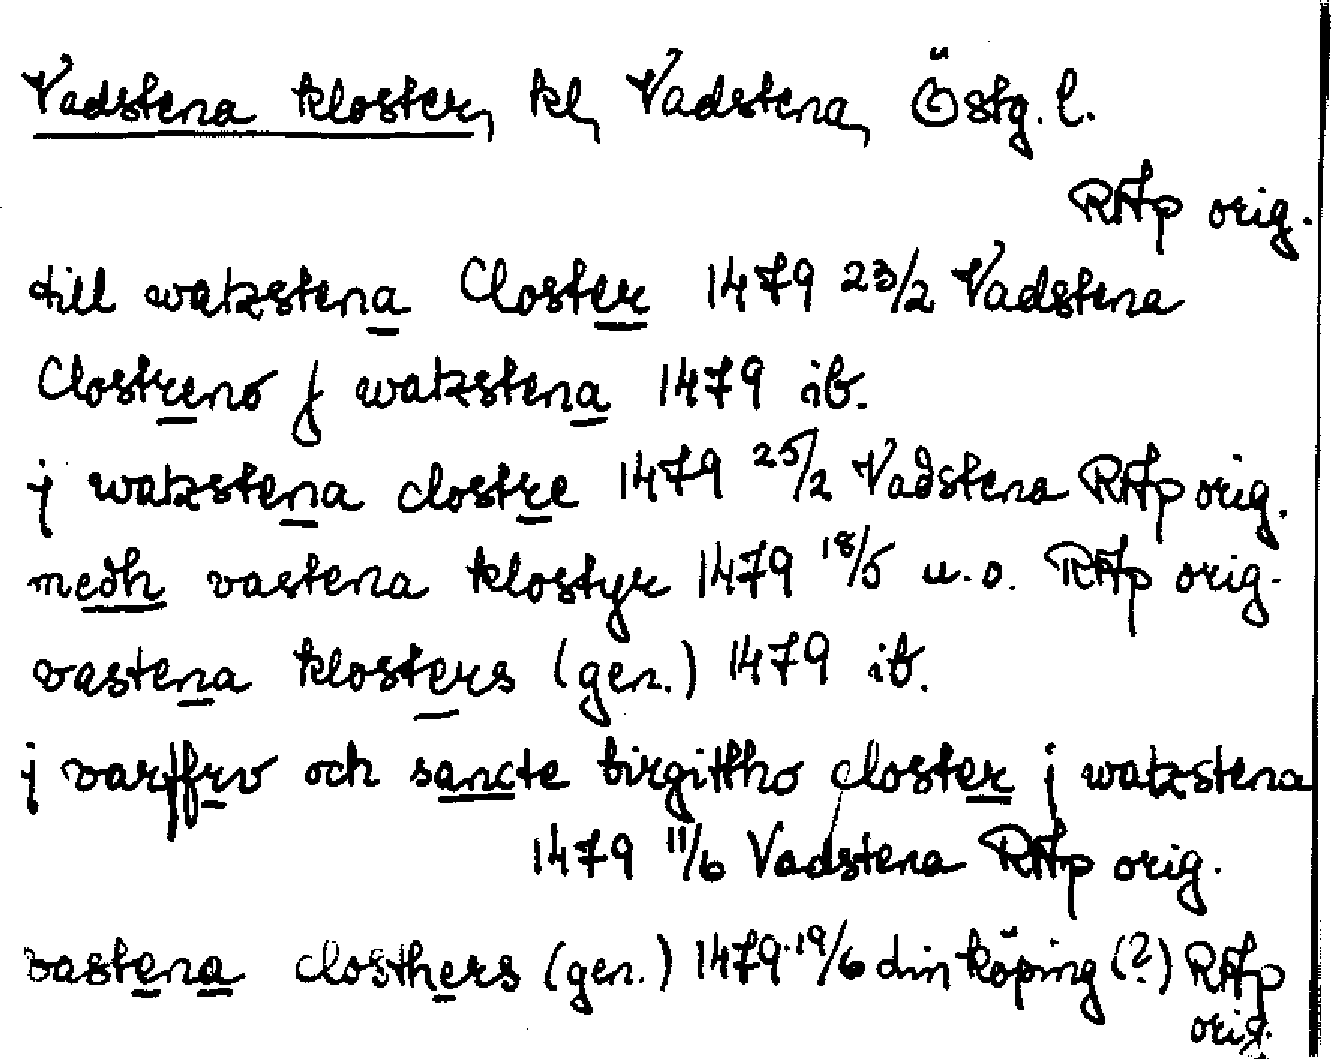 Vadstena kloster, kl, Vadstena, Östg. l.
RAp orig.
till watzstena Closter 1479 23/2 Vadstena
Clostreno j watzstena 1479 ib.
j watzstena clostre 1479 25/2 Vadstena RAp orig.
medh vastena klostyr 1479 18/5 u.o. RAp orig.
vastena klosters (gen.) 1479 ib.
j varffrv och sancte birgittho closter j watzstena
1479 11/6 Vadstena RAp orig.
vastena closthers (gen.) 1479 19/6 dinköping (?) RAp
orig.